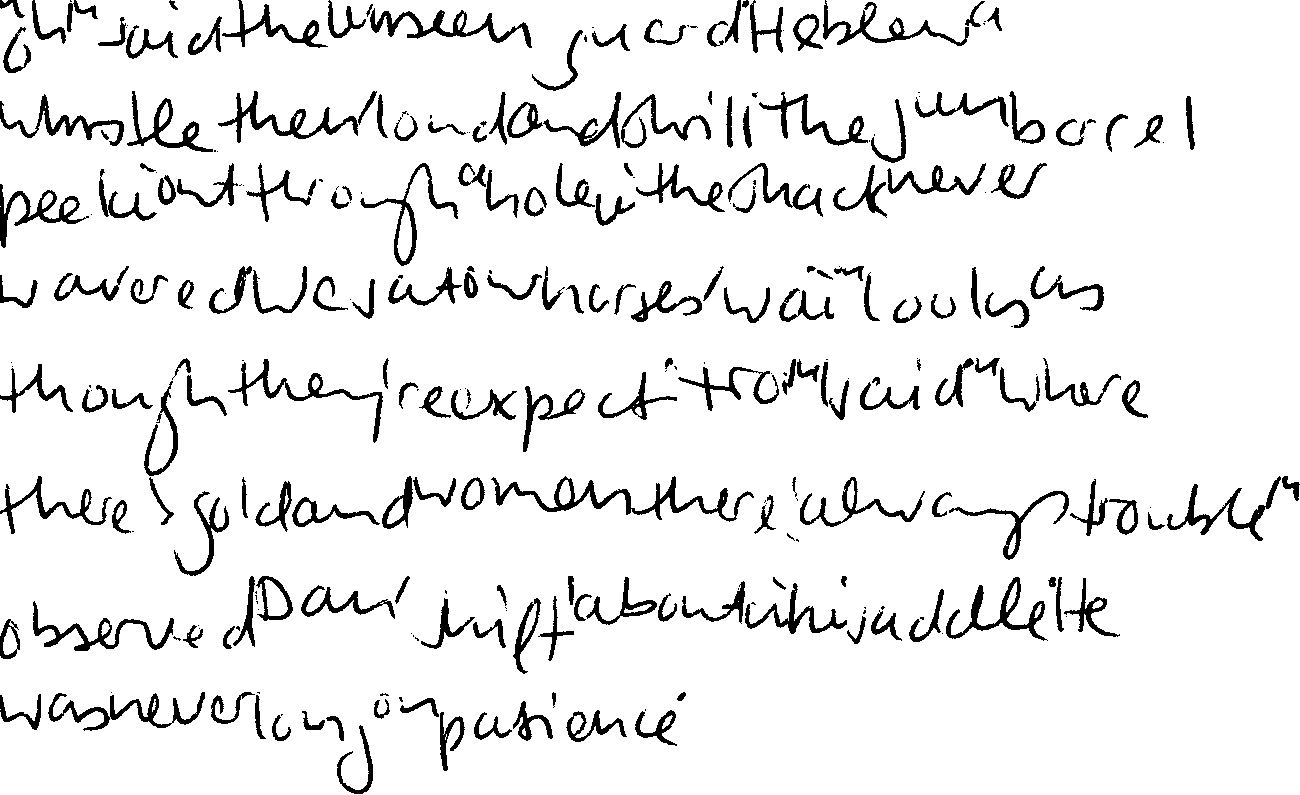 "Oh" said the unseen guard He blew a
whistle then loud and shrill The gun barrel
peeking out through a hole in the shack never
wavered We sat on horses waiting looks as
though they're expecting trouble" I said "Where
there's gold and women there's always trouble"
observed Dan shifting about in his saddle He
was never long on patience